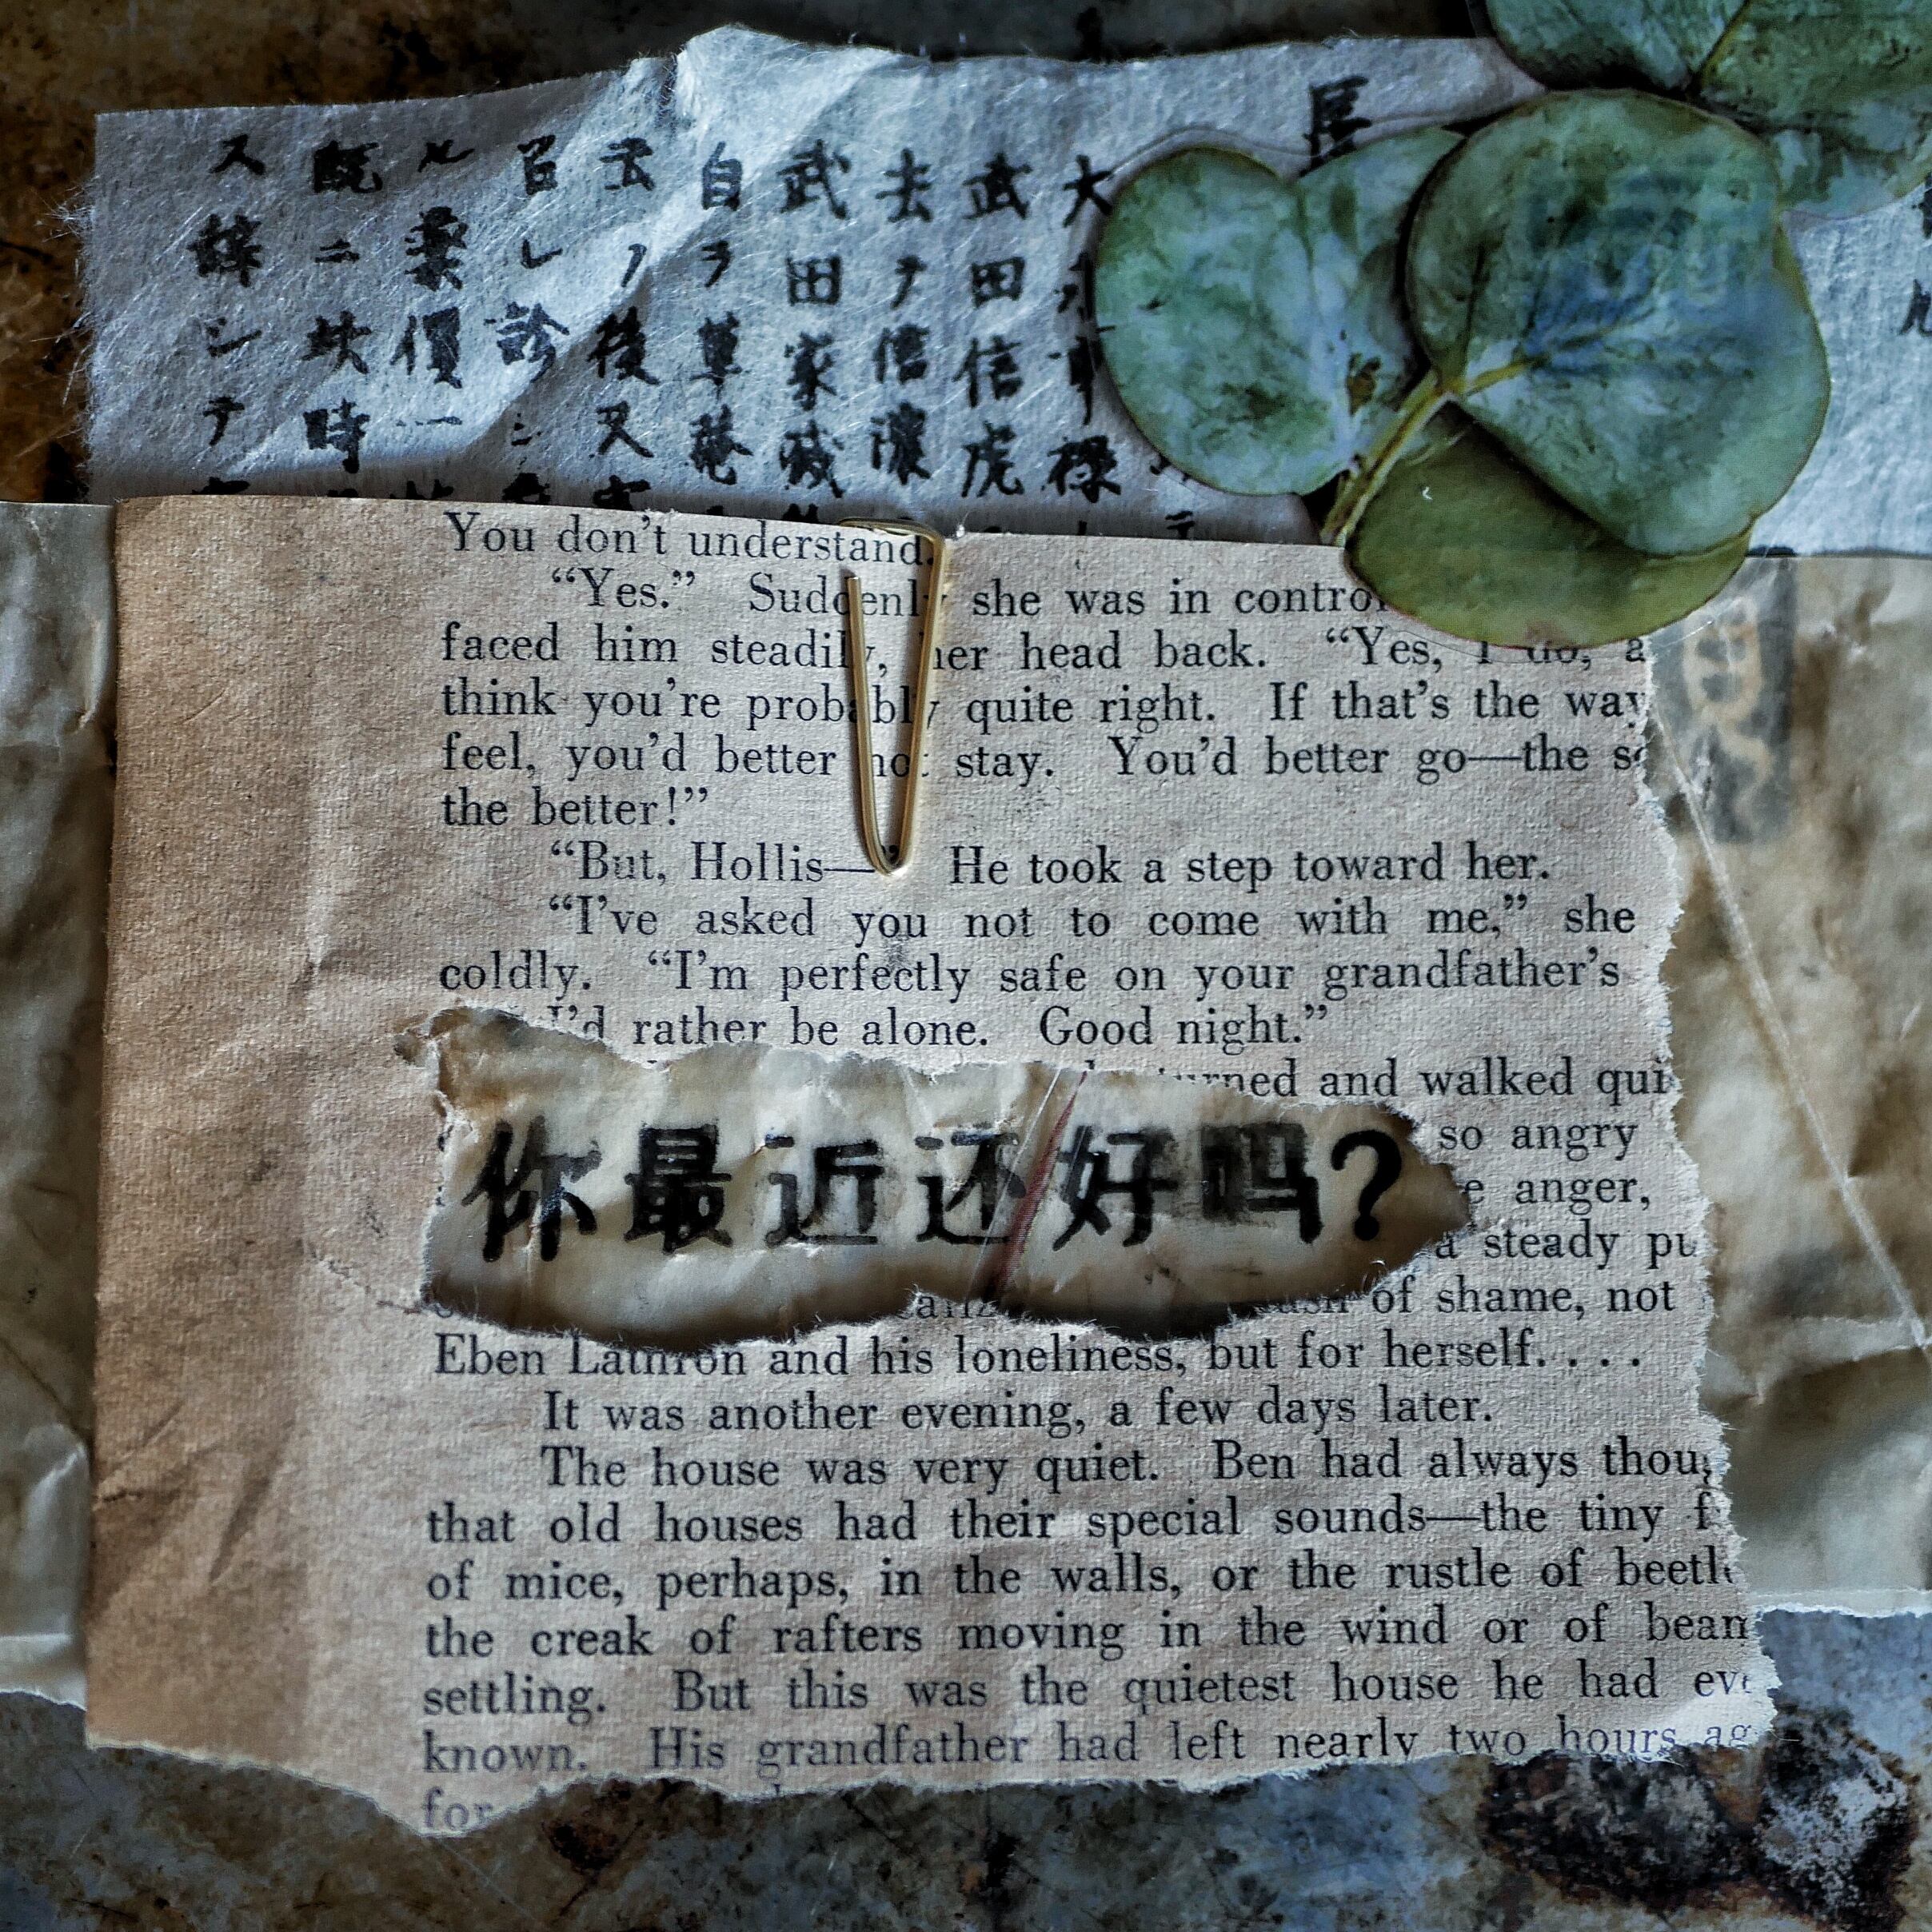 長
大
武田信虎
去テ信濃
武田家滅
自ヲ草菴
云フ後又
召レ診
ル薬價一
既ニ此時
ス辞シテ
You don't understand.
“Yes.” Suddenly she was in control
faced him steadily, her head back. “Yes, I do, a
think you're probably quite right. If that's the way
feel, you'd better not stay. You'd better go—the
the better!”
“But, Hollis—” He took a step toward her.
“I've asked you not to come with me,” she
coldly. “I'm perfectly safe on your grandfather's
I'd rather be alone. Good night.”
turned and walked
so angry
anger,
你最近还好吗?
a steady
of shame, not
Eben Lathron and his loneliness, but for herself. . . .
It was another evening, a few days later.
The house was very quiet. Ben had always
that old houses had their special sounds—the tiny
of mice, perhaps, in the walls, or the rustle of
the creak of rafters moving in the wind or of
settling. But this was the quietest house he had
known. His grandfather had left nearly two hours
for